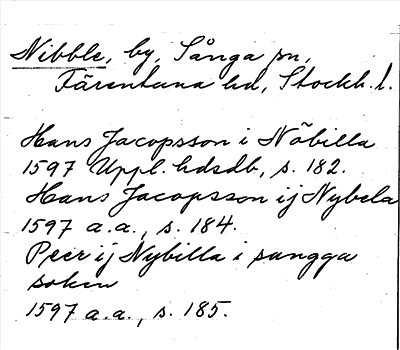 Nibble, by, Sånga sn,
Färentuna hd, Stockh. l.
Hans Jacopsson i Nöbilla
1597 Uppl. hdsdb, s. 182.
Hans Jacopsson ij Nybela
1597 a.a., s. 184.
Peer ij Nybilla i sungga
soken
1597 a.a., s. 185.